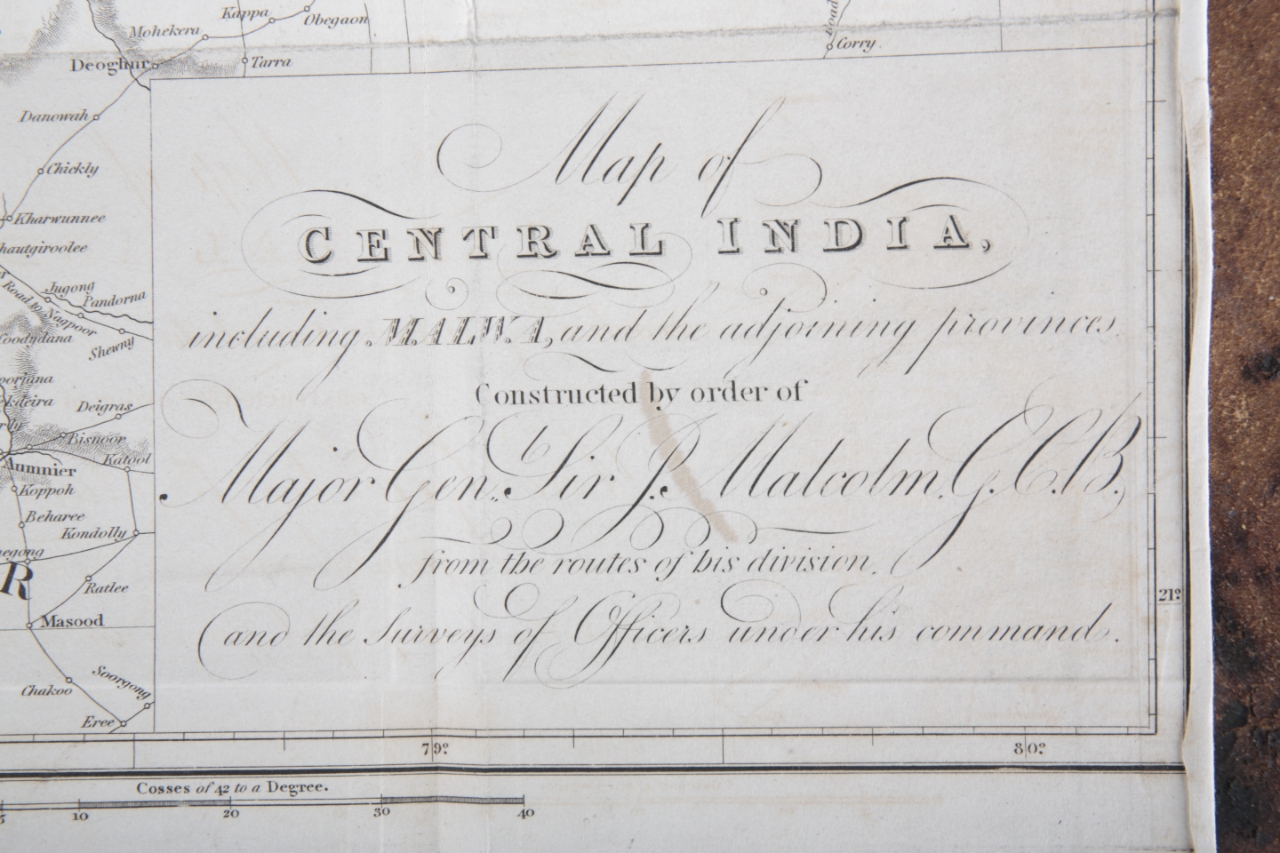 Kappa
Obegaon
Mohekera
Corry.
Deoghur
Tarra
Danowah
Chickly
Kharwunnee
hautgiroolee
Jugong
Pandorna
Road to Nagpoor
Shewny
Deigras
Bisnoor
Katool
Aumnier
Koppoh
Beharee
Kondolly
R
Ratlee
Masood
Soorgong
Chakoo
Eree
Map of
CENTRAL INDIA,
including MALWA, and the adjoining provinces.
Constructed by order of
Major Gen. Sir J. Malcolm, G.C.B.,
from the routes of his division,
and the Surveys of Officers under his command.
21°
79°
80°
Cosses of 42 to a Degree.
10 20 30 40